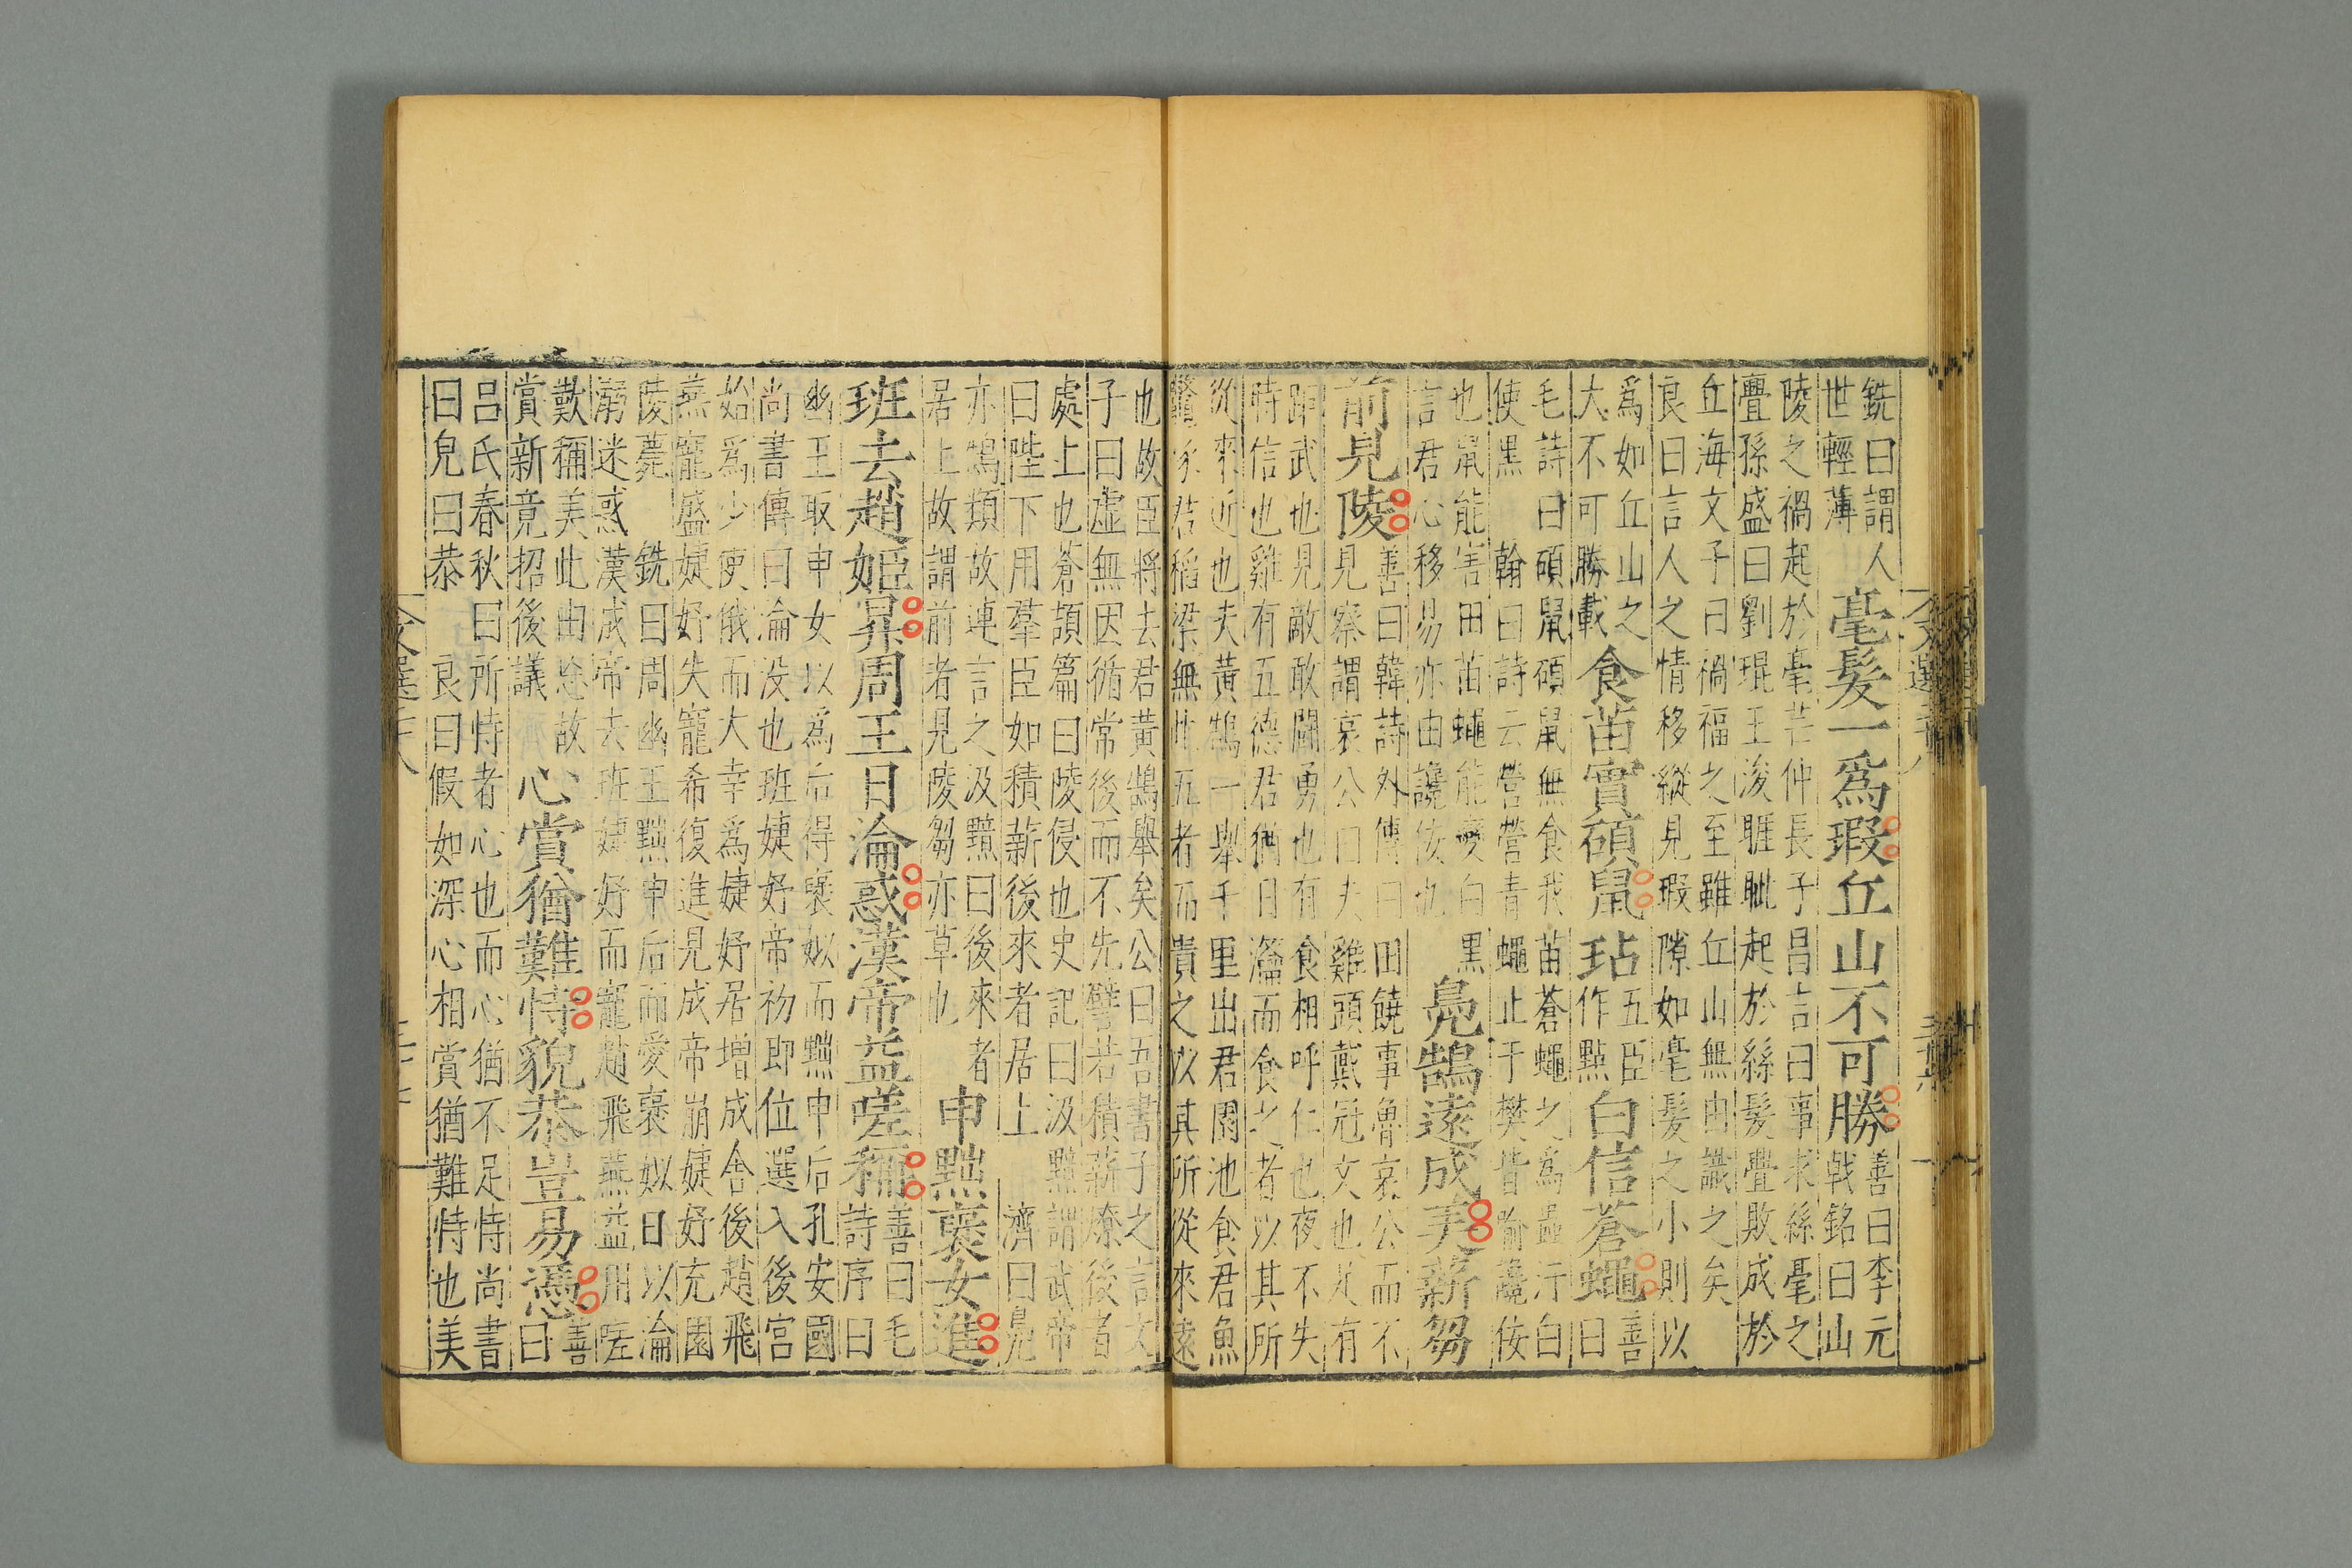 銑曰謂人
世輕薄
毫髮一爲瑕丘山不可勝
善曰李元
戟銘曰山
陵之禍起於毫芒仲長子昌言曰事求絲毫之
疊孫盛曰劉琨王浚睚眦起於絲髮疊敗成於
丘海文子曰禍福之至雖丘山無由識之矣
良曰言人之情移縱見瑕隙如毫髮之小則以
爲如丘山之
大不可勝載
食苗實碩鼠玷
五臣
作點
白信蒼蠅
善
曰
毛詩曰碩鼠碩鼠無食我苗蒼蠅之爲蟲汙白
使黑 翰曰詩云營營青蠅止于樊皆喻讒佞
也鼠能害田苗蠅能變白黑
言君心移易亦由讒佞也
鳧鵠遠成美薪芻
前見陵
善曰韓詩外傳曰田饒事魯哀公而不
見察謂哀公曰夫雞頭戴冠文也足有
距武也見敵敢鬭勇也有食相呼仁也夜不失
時信也雞有五德君猶日瀹而食之者以其所
從來近也夫黃鵠一舉千里出君園池食君魚
鱉啄君稻粱無此五者而貴之以其所從來遠
也故臣將去君黃鵠舉矣公曰吾書子之言文
子曰虛無因循常後而不先譬若積薪燎後者
處上也蒼頡篇曰陵侵也史記曰汲黯謂武帝
曰陛下用羣臣如積薪後來者居上 濟曰鳧
亦鵠類故連言之汲黯曰後來者
居上故謂前者見陵芻亦草也
申黜褒女進
班去趙姬昇周王日淪惑漢帝益嗟稱
善曰毛
詩序曰
幽王取申女以爲后得褒姒而黜申后孔安國
尚書傳曰淪没也班婕妤帝初即位選入後宮
始爲少使俄而大幸爲婕妤居增成舍後趙飛
燕寵盛婕妤失寵希復進見成帝崩婕妤充園
陵薨 銑曰周幽王黜申后而愛褒姒日以淪
溺迷惑漢成帝去班婕妤而寵趙飛燕益用嗟
歎稱美此由忿故
賞新竟招後議
心賞猶難恃貌恭豈易憑
善
曰
呂氏春秋曰所恃者心也而心猶不足恃尚書
曰皃曰恭 良曰假如深心相賞猶難恃也美